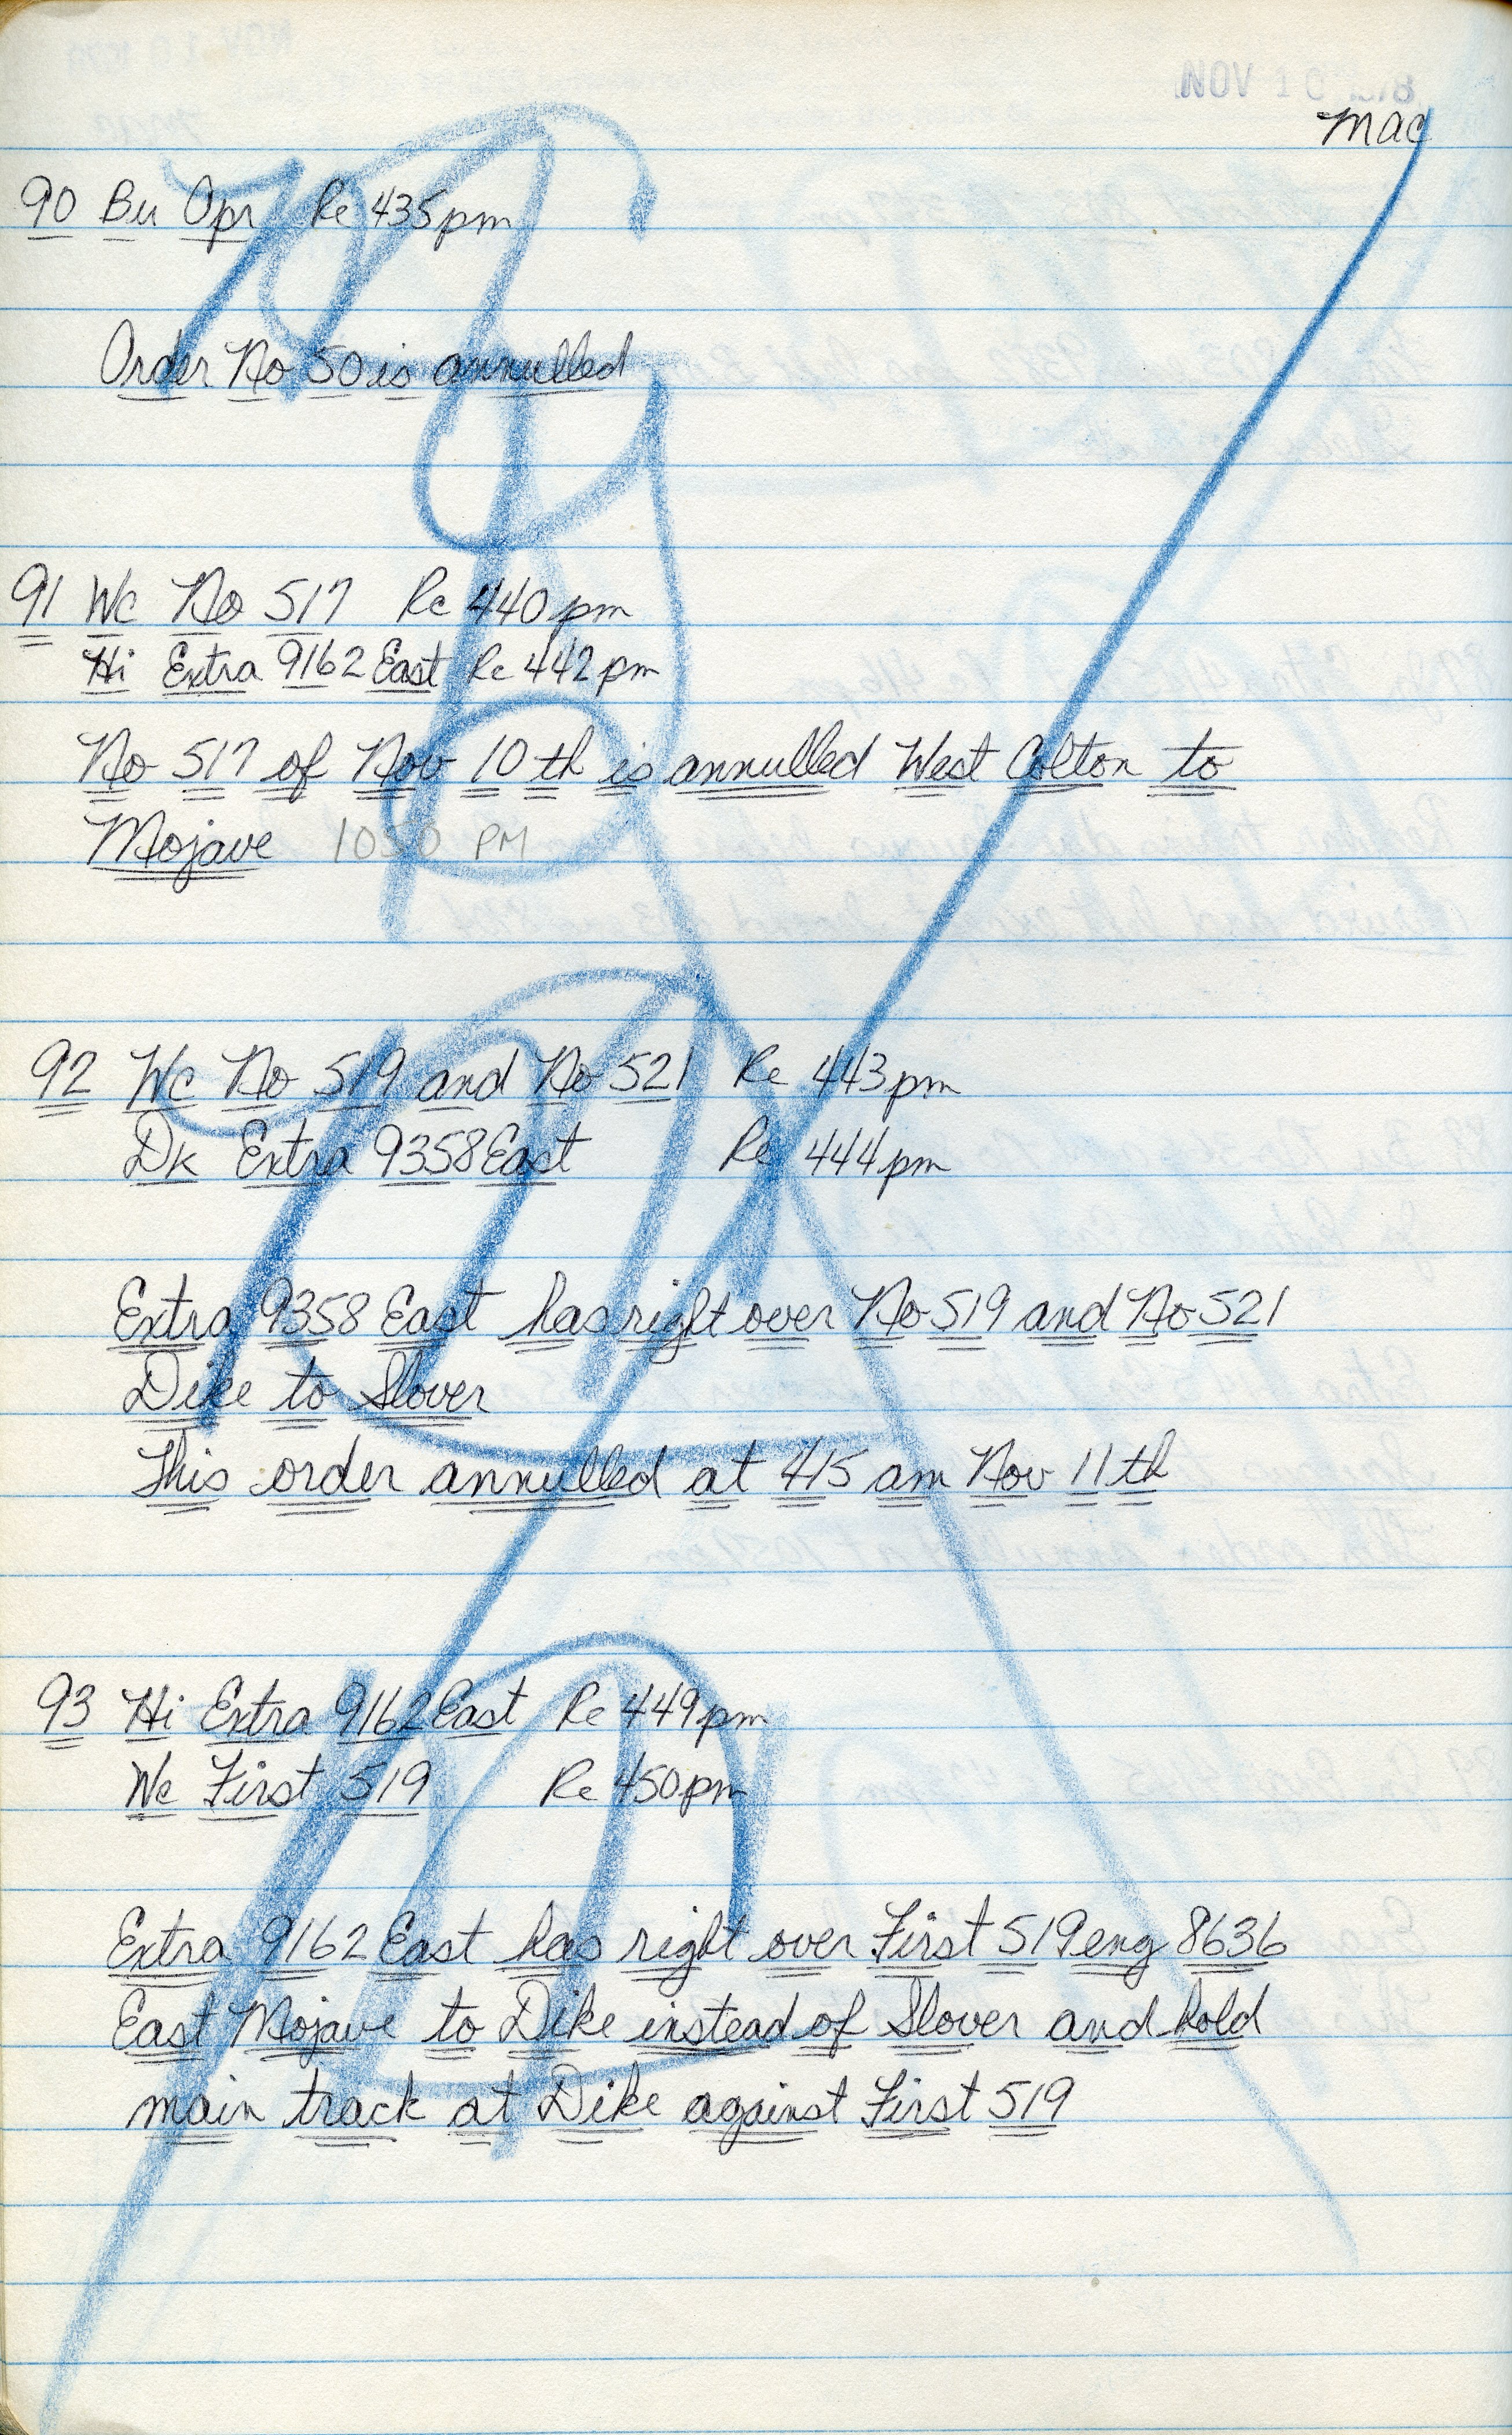 NOV 10
mac
90 Bu Opr Re 435pm
Order No 50 is annulled
91 Wc No 517 Re 440 pm
Hi Extra 9162 East Re 442 pm
No 517 of Nov 10th is annulled West Colton to
Mojave 1050 PM
92 Wc No 519 and No 521 Re 443pm
Dk Extra 9358 East Re 444pm
Extra 9358 East has right over No 519 and No 521
Dike to Slover
This order annulled at 415 am Nov 11th
93 Hi Extra 9162 East Re 449pm
Wc First 519 Re 450pm
Extra 9162 East has right over First 519 eng 8636
East Mojave to Dike instead of Slover and hold
main track at Dike against First 519